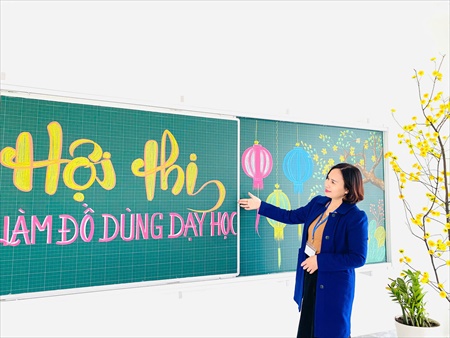 Hội thi
LÀM ĐỒ DÙNG DẠY HỌC